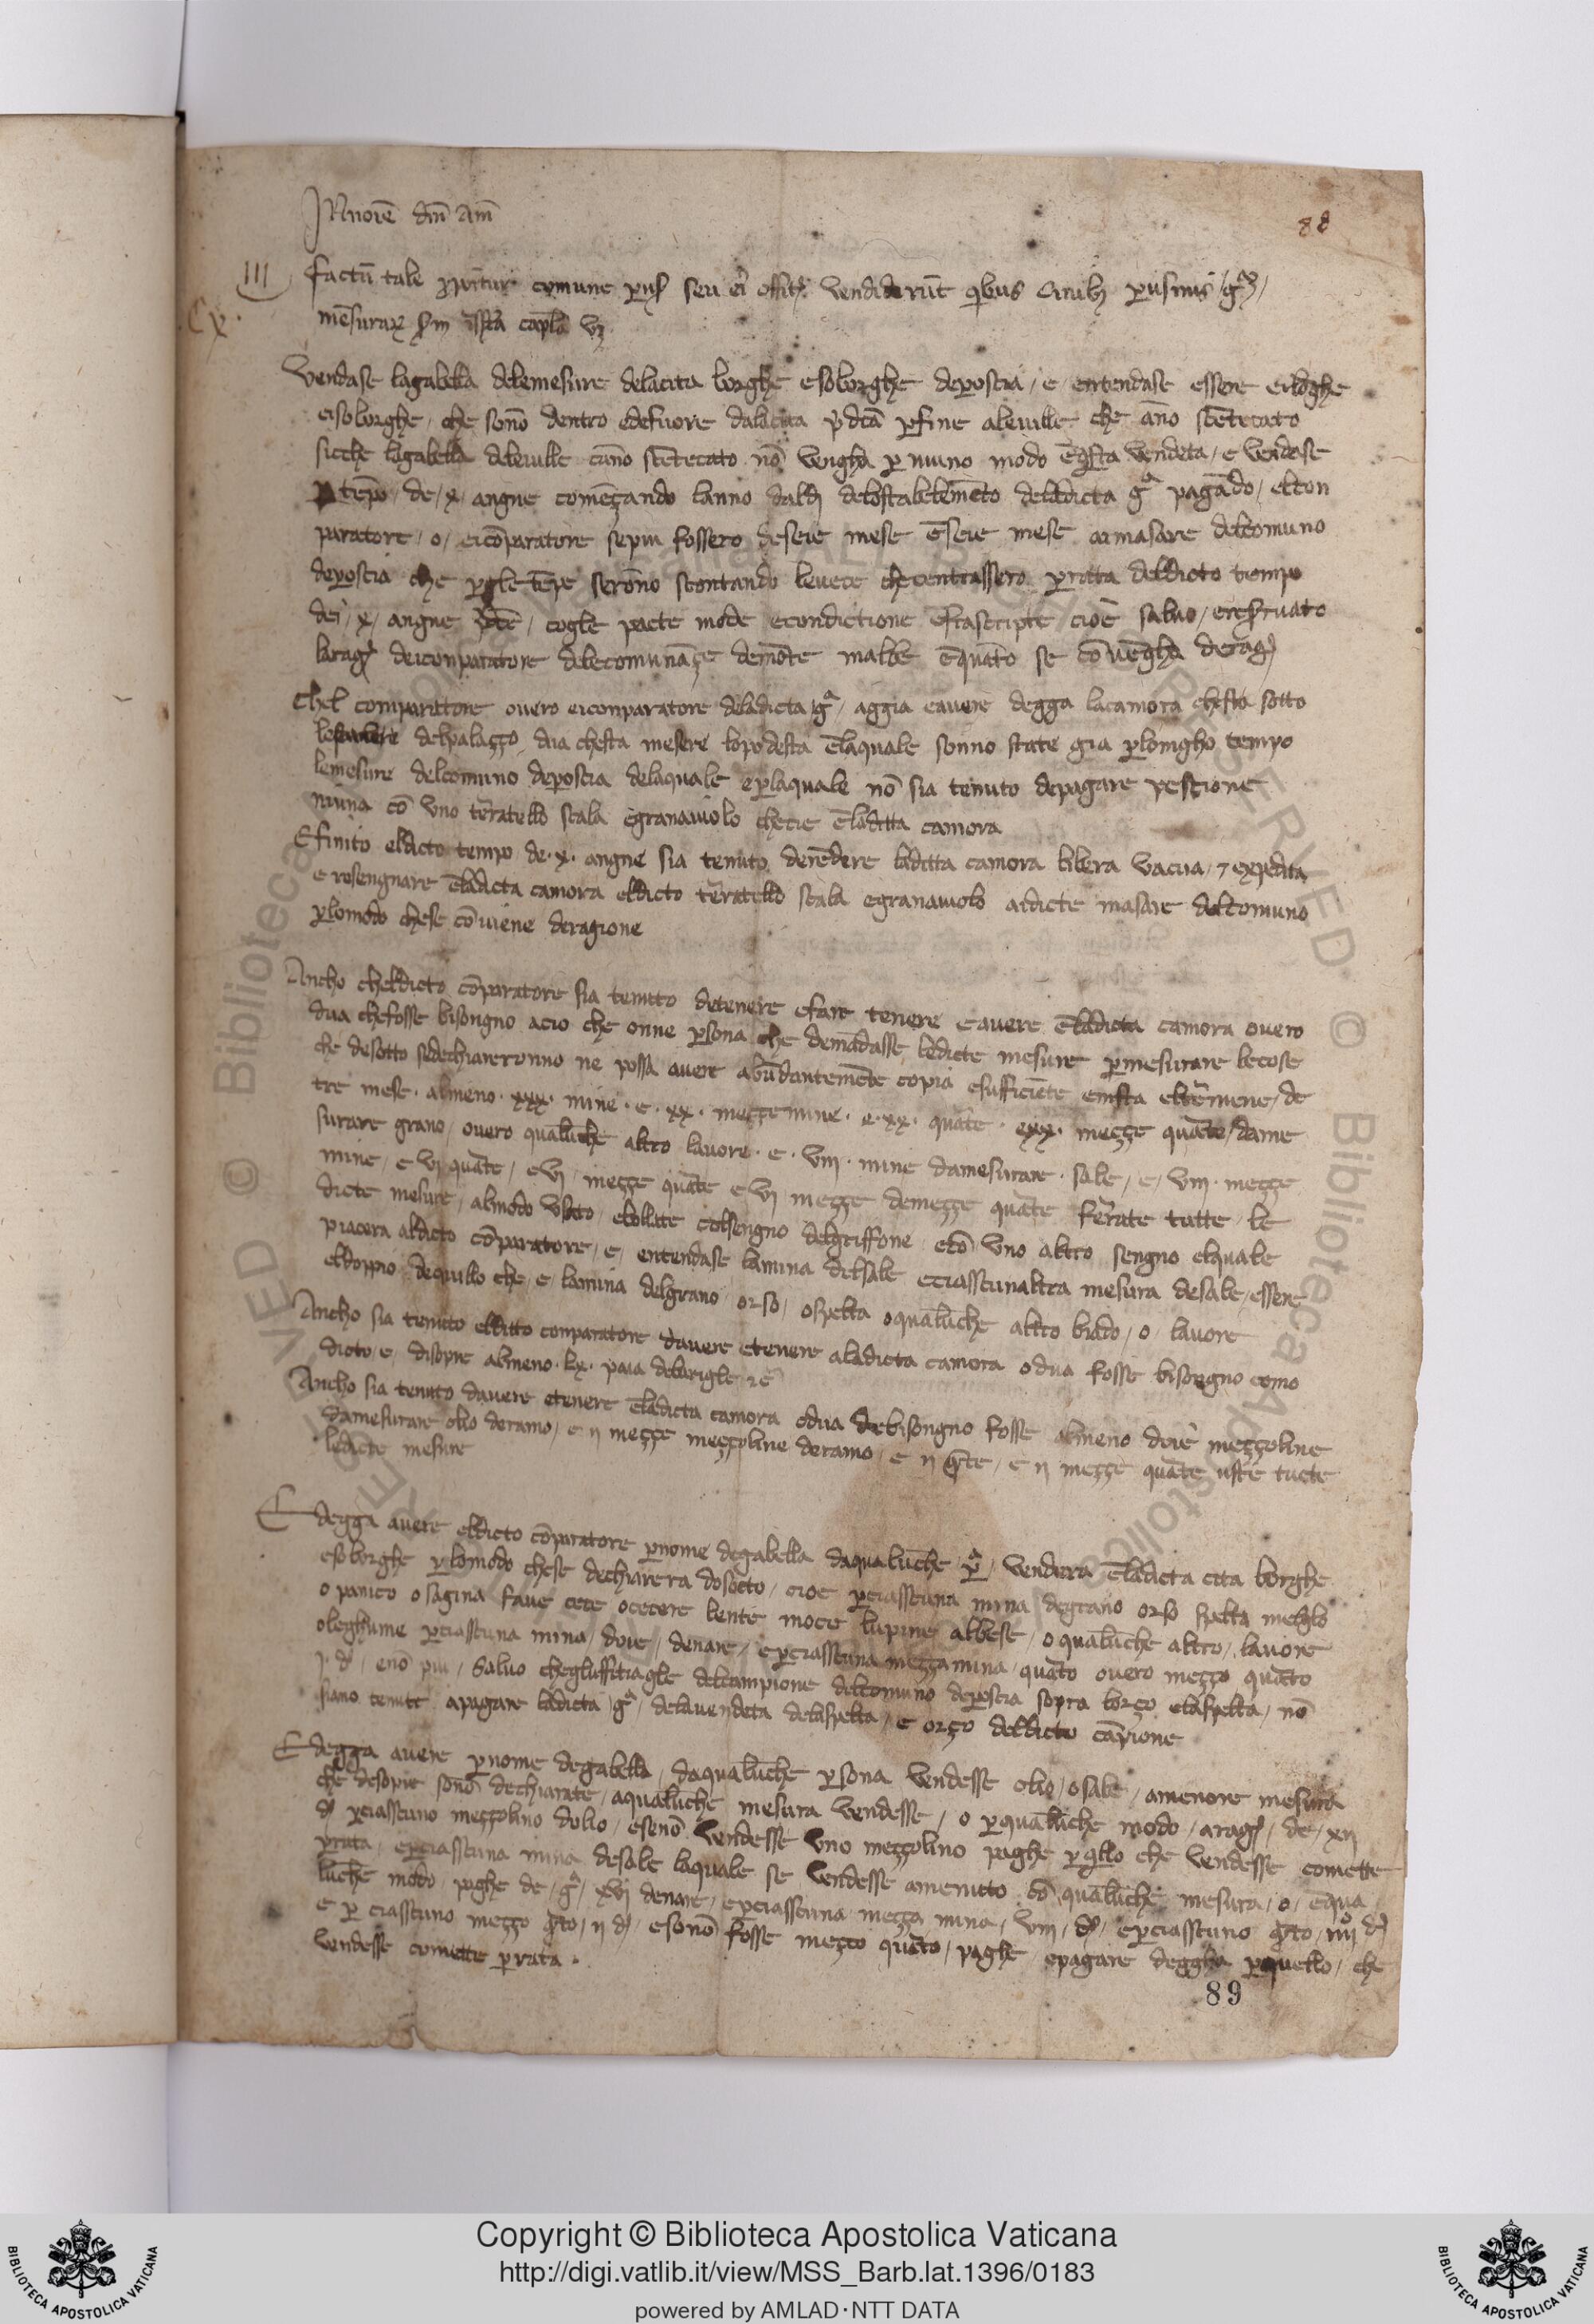 88
III
Vendase lagabella delemesure delacita borghe esoborghe deposcia / e / entendase essere eiborghe
eisoborghe / che sonno dentro edefuore dalacita perfine aleville che anno stentecato
sicche lagabella deleville canno stentecato nō vengha p niuno modo vendeta / e vendase
tēpo / de / x / angne comēçando lanno dellostabelemēto deladicta gª pagādo / elcon
paratore / o / eicōparatore sepiu fossero deseie mese ēseie mese aimasare delcomuno
deposcia che serōno scontando levece checentrassero prata deldicto tempo
dei / x / angne / cogle pacte mode econdictione cioe salvo / ereservato
deiconparatore delecomunāçe ēquāto se cōvēgha
Chel comparatore overo eiconparatore deladicta gª / aggia eavere degga lacamora chesta sotto
delpalaçço dua chesta mesere lopodesta ēlaquale sonno state gia plongho tempo
lemesure delcomuno deposcia delaquale eplaquale nō sia tenuto depagare pescione
niuna cō uno teratello scala egranaiolo checie ēladitta camora
Efinito eldicto tempo de · x · angne sia tenuto derēdere laditta camora libera vacua / 7 expedita
e rosengnare ēladicta camora eldicto teratello scala egranaiolo aidicte masare delcomuno
plomodo chese cōviene deragione
Ancho cheldicto cōparatore sia tenuto detenere efare tenere eavere ēladicta camora overo
dua chefosse bisongno acio che onne psona che demādasse ledicte mesure pmesurare lecose
che desotto sedechiareronno ne possa avere abūdantemēte copia esufficiēte de
tre mese · almeno · xxx · mine · e · xx · meççemine · e · xx · quarte · exx · meççe quarte / dame
surare grano / overo qualūche altro lavore · e · viii · mine damesurare · sale / e / viii · meççe
mine / e vi quarte / e vi / meççe quarte e vi meççe demeççe quarte ferate tutte / le
dicte mesure / almodo usato / ebollate colsengno delgriffone ecō uno altro sengno elquale
piacera aldicto cōparatore / e / entendase lamina delsale eciasscunaltra mesura desale / essere
eldoppio dequillo che / e lamina delgrano / orso / ospelta oqualūche altro biado / o / lavore
Ancho sia tenuto elditto conparatore davere etenere aladicta camora odua fosse bisongno como
dicto / e / disopre almeno · lx · paia debarigle
Ancho sia tenuto davere etenere ēladicta camora odua debisongno fosse almeno doie meççoline
damesurare olio deramo / e ii meççe meççoline deramo / e ii / e ii meççe quarte tucte
ledicte mesure
E degga avere eldicto cōparatore pnome degabella daqualūche / vendera ēladicta cita borghe
esoborghe plomodo chese dechiarera dosotto / cioe pciasscuna mina degrano orso spelta meglo
o panico o sagina fave cece ocecere lente moce lupine albese / o qualūche altro / lavore
oleghume pciasscuna mina / doie / denare / epciasscuna meçça mina / quarto overo meçço quarto
/ enō piu / salvo chegluffitiagle delcampione delcomuno deposcia sopra lorço elaspelta / nō
siano tenute apagare ladicta gª / delavendeta delaspelta / e orço deldicto cāpione
E degga avere pnome degabella / daqualūche psona vendesse olio / osale / amenore mesura
che desopre sonō dechiarate / aqualūche mesura vendesse / o pqualūche modo / / de / xii
pciasscuno meççolino dolio / esenō vendesse uno meççolino paghe pqllo che vendesse comette
prata / epciasscuna mina desale laquale se vendesse amenuto cō qualūche mesura / o / ēqua
lūche modo / paghe de / gª / xvi denare / epciasscuna meçça mina / viii / / epciasscuno
e p ciasscuno meçço / esenō fosse meçço quarto / paghe epagare deggha pquello / che
vendesse comette prata ·
89
Copyright © Biblioteca Apostolica Vaticana
http://digi.vatlib.it/view/MSS_Barb.lat.1396/0183
powered by AMLAD·NTT DATA
BIBLIOTECA APOSTOLICA VATICANA
BIBLIOTECA APOSTOLICA VATICANA